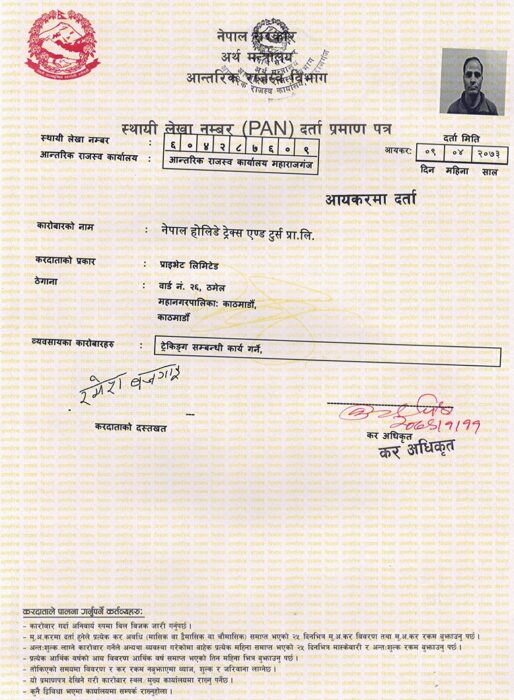 नेपाल सरकार
अर्थ मन्त्रालय
आन्तरिक राजस्व विभाग
स्थायी लेखा नम्बर (PAN) दर्ता प्रमाण पत्र
स्थायी लेखा नम्बर : ६ ० ४ २ ८ ७ ६ ० ९
दर्ता मिति
आन्तरिक राजस्व कार्यालय : आन्तरिक राजस्व कार्यालय महाराजगंज
आयकर: ०९ ०४ २०७३
दिन महिना साल
आयकरमा दर्ता
कारोबारको नाम : नेपाल होलिडे ट्रेक्स एण्ड टुर्स प्रा.लि.
करदाताको प्रकार : प्राइभेट लिमिटेड
ठेगाना : वार्ड नं. २६, ठमेल
महानगरपालिका: काठमाडौं,
काठमाडौं
व्यवसायका कारोबारहरु : ट्रेकिङ्ग सम्बन्धी कार्य गर्ने,
रमेश बजगाइ
करदाताको दस्तखत
कर अधिकृत
कर अधिकृत
करदाताले पालना गर्नुपर्ने कर्तव्यहरु:
- कारोबार गर्दा अनिवार्य रुपमा बिल बिजक जारी गर्नुपर्छ ।
- मू.अ.करमा दर्ता हुनेले प्रत्येक कर अवधि (मासिक वा द्वैमासिक वा चौमासिक) समाप्त भएको २५ दिनभित्र मू.अ.कर विवरण तथा मू.अ.कर रकम बुझाउनु पर्छ ।
- अन्त:शुल्क लाग्ने कारोबार गर्नेले अन्यथा व्यवस्था गरेकोमा बाहेक प्रत्येक महिना समाप्त भएको २५ दिनभित्र मास्केवारी र अन्त:शुल्क रकम बुझाउनुपर्छ ।
- प्रत्येक आर्थिक वर्षको आय विवरण आर्थिक वर्ष समाप्त भएको तिन महिना भित्र बुझाउनु पर्छ ।
- तोकिएको समयमा विवरण र कर रकम नबुझाएमा ब्याज, शुल्क र जरिवाना लाग्नेछ ।
- यो प्रमाणपत्र देखिने गरी कारोबार स्थल, मुख्य कार्यालयमा राख्नु पर्नेछ ।
- कुनै द्विविधा भएमा कार्यालयमा सम्पर्क राख्नुहोला ।